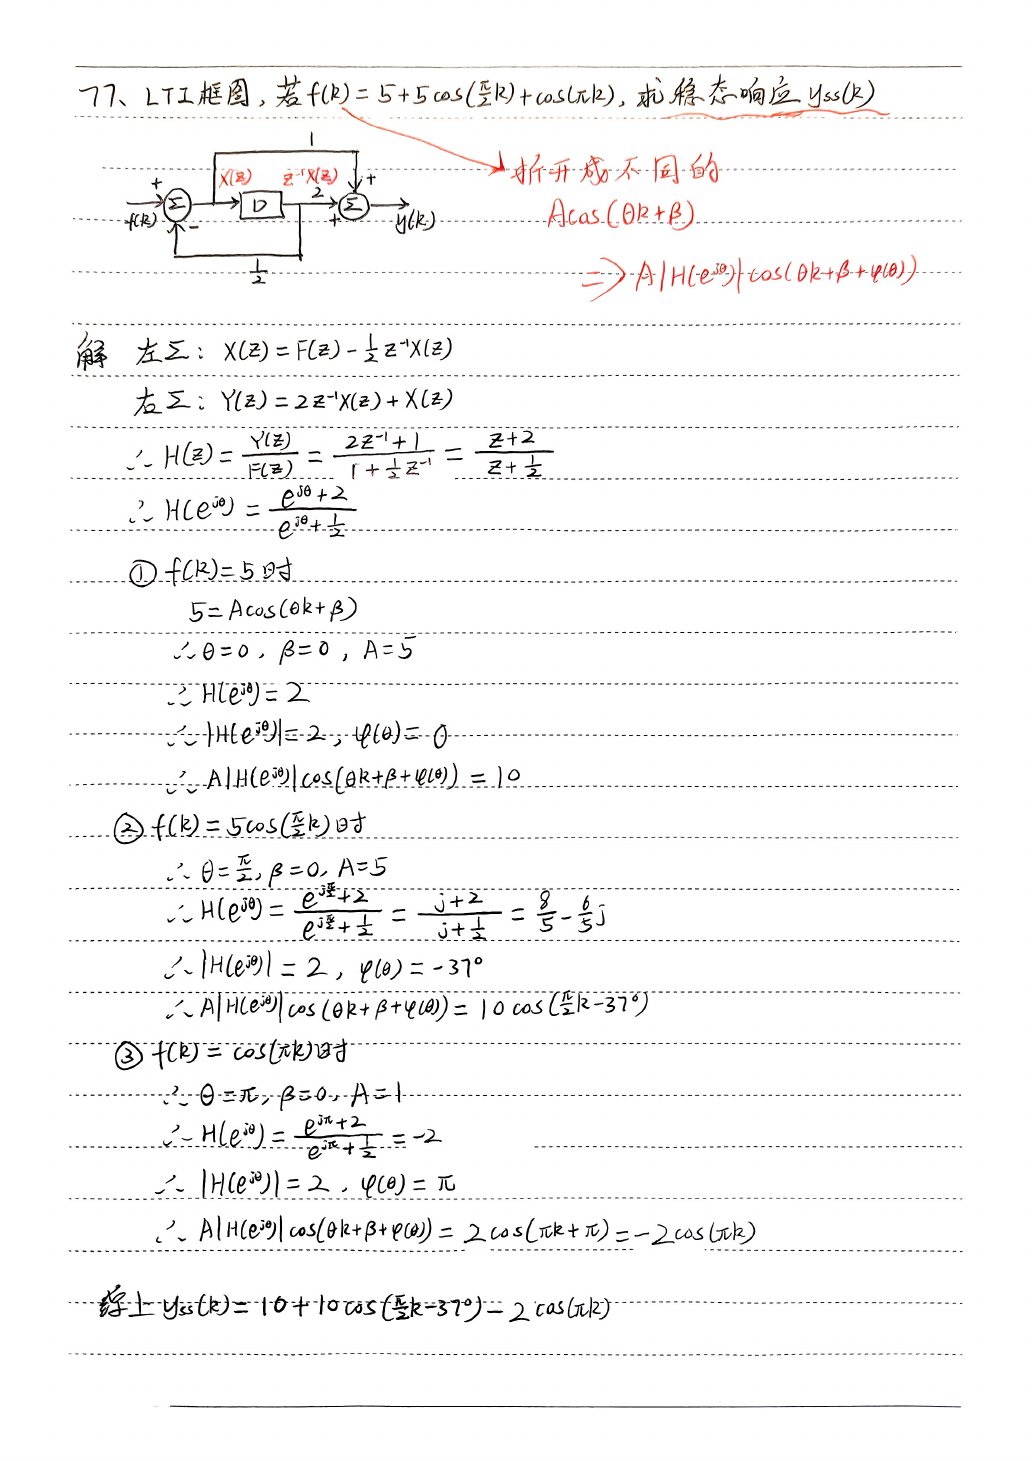 77、LTI框图，若f(k)=5+5cos(π/2 k)+cos(πk)，求稳态响应yss(k)
拆开成不同的
Acos(θk+β)
⇒ A|H(e^jθ)|cos(θk+β+φ(θ))
1
+ X(z) z⁻¹X(z) +
Σ D 2 Σ
f(k) - + y(k)
1/2
解 左Σ：X(z)=F(z)-1/2 z⁻¹X(z)
右Σ：Y(z)=2z⁻¹X(z)+X(z)
∴ H(z)=Y(z)/F(z)=(2z⁻¹+1)/(1+1/2 z⁻¹)=(z+2)/(z+1/2)
∴ H(e^jθ)=(e^jθ+2)/(e^jθ+1/2)
① f(k)=5时
5=Acos(θk+β)
∴θ=0，β=0，A=5
∴H(e^jθ)=2
∴|H(e^jθ)|=2，φ(θ)=0
∴A|H(e^jθ)|cos(θk+β+φ(θ))=10
② f(k)=5cos(π/2 k)时
∴θ=π/2，β=0，A=5
∴H(e^jθ)=(e^jπ/2+2)/(e^jπ/2+1/2)=(j+2)/(j+1/2)=8/5-6/5j
∴|H(e^jθ)|=2，φ(θ)=-37°
∴A|H(e^jθ)|cos(θk+β+φ(θ))=10cos(π/2 k-37°)
③ f(k)=cos(πk)时
∴θ=π，β=0，A=1
∴H(e^jθ)=(e^jπ+2)/(e^jπ+1/2)=-2
∴|H(e^jθ)|=2，φ(θ)=π
∴A|H(e^jθ)|cos(θk+β+φ(θ))=2cos(πk+π)=-2cos(πk)
综上yss(k)=10+10cos(π/2 k-37°)-2cos(πk)